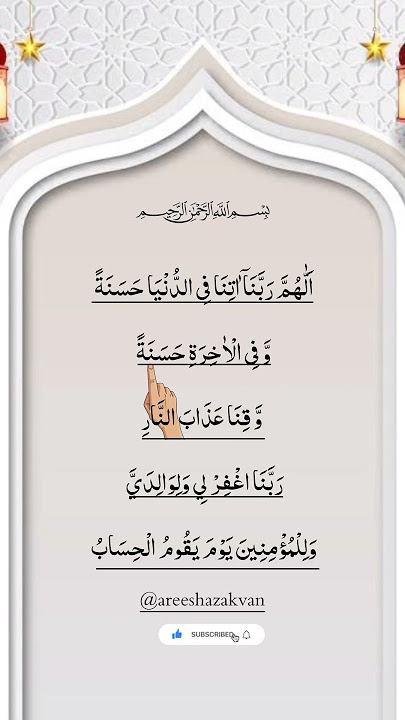 بِسْمِ اللَّهِ الرَّحْمَٰنِ الرَّحِيمِ
اَللّٰهُمَّ رَبَّنَآ اٰتِنَا فِي الدُّنْيَا حَسَنَةً
وَّفِي الْاٰخِرَةِ حَسَنَةً
وَّقِنَا عَذَابَ النَّارِ
رَبَّنَا اغْفِرْ لِي وَلِوَالِدَيَّ
وَلِلْمُؤْمِنِينَ يَوْمَ يَقُومُ الْحِسَابُ
@areeshazakvan
SUBSCRIBED